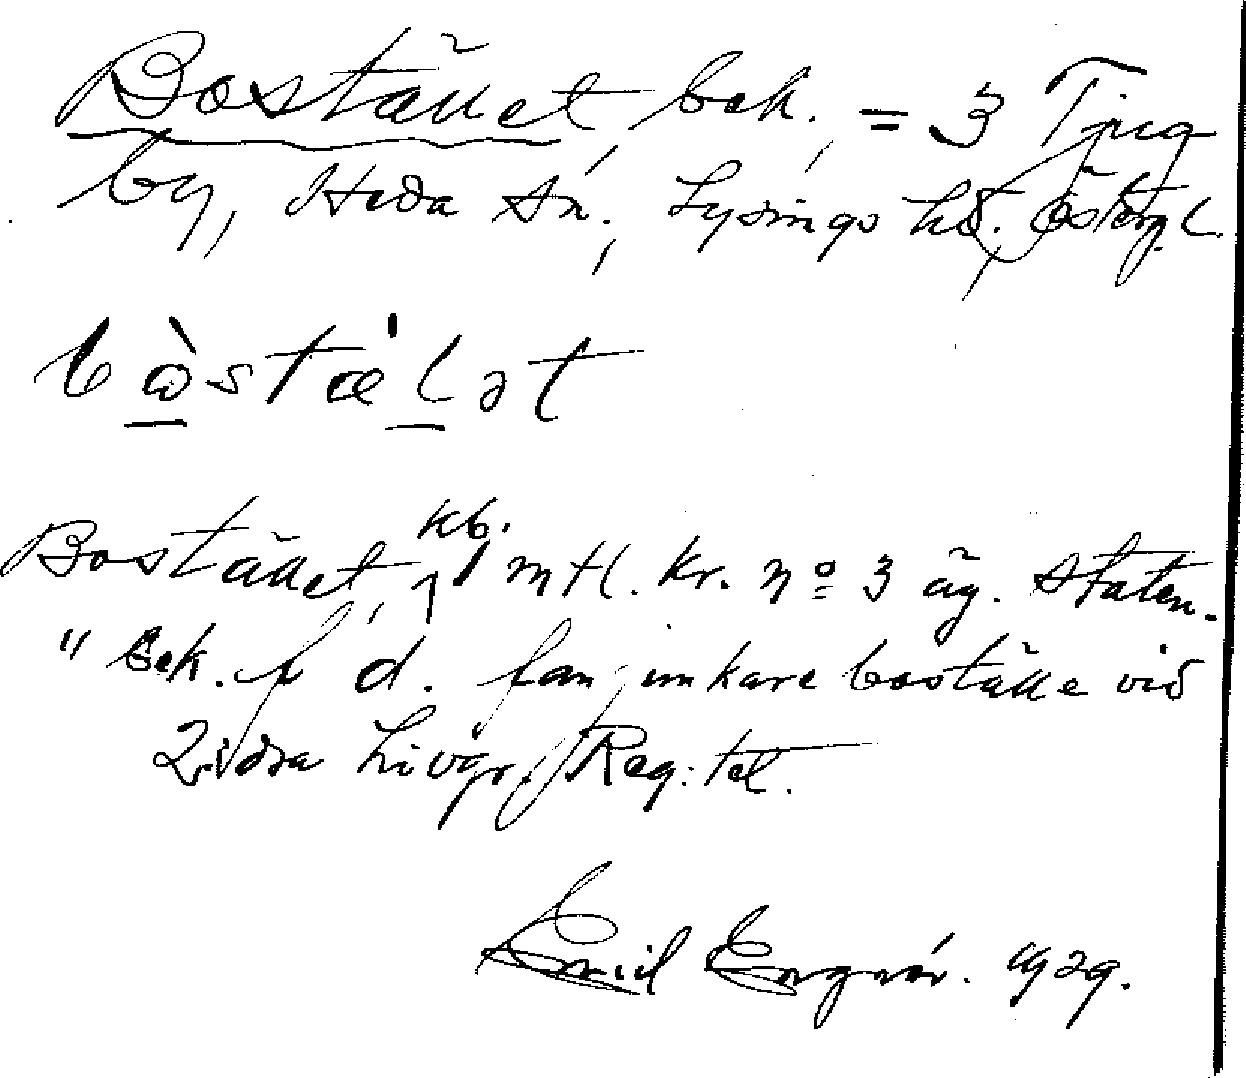 Bostället, bek., = 3 Tjug
by, Heda sn., Lysings hd., Östergl.
bòstæ'lət
Bostället, kb. 1 mtl. kr. nº 3 äg. Staten.
" Bek. f d. fanjunkare boställe vid
2. dra Livgr. Reg:tet.
Emil 1929.